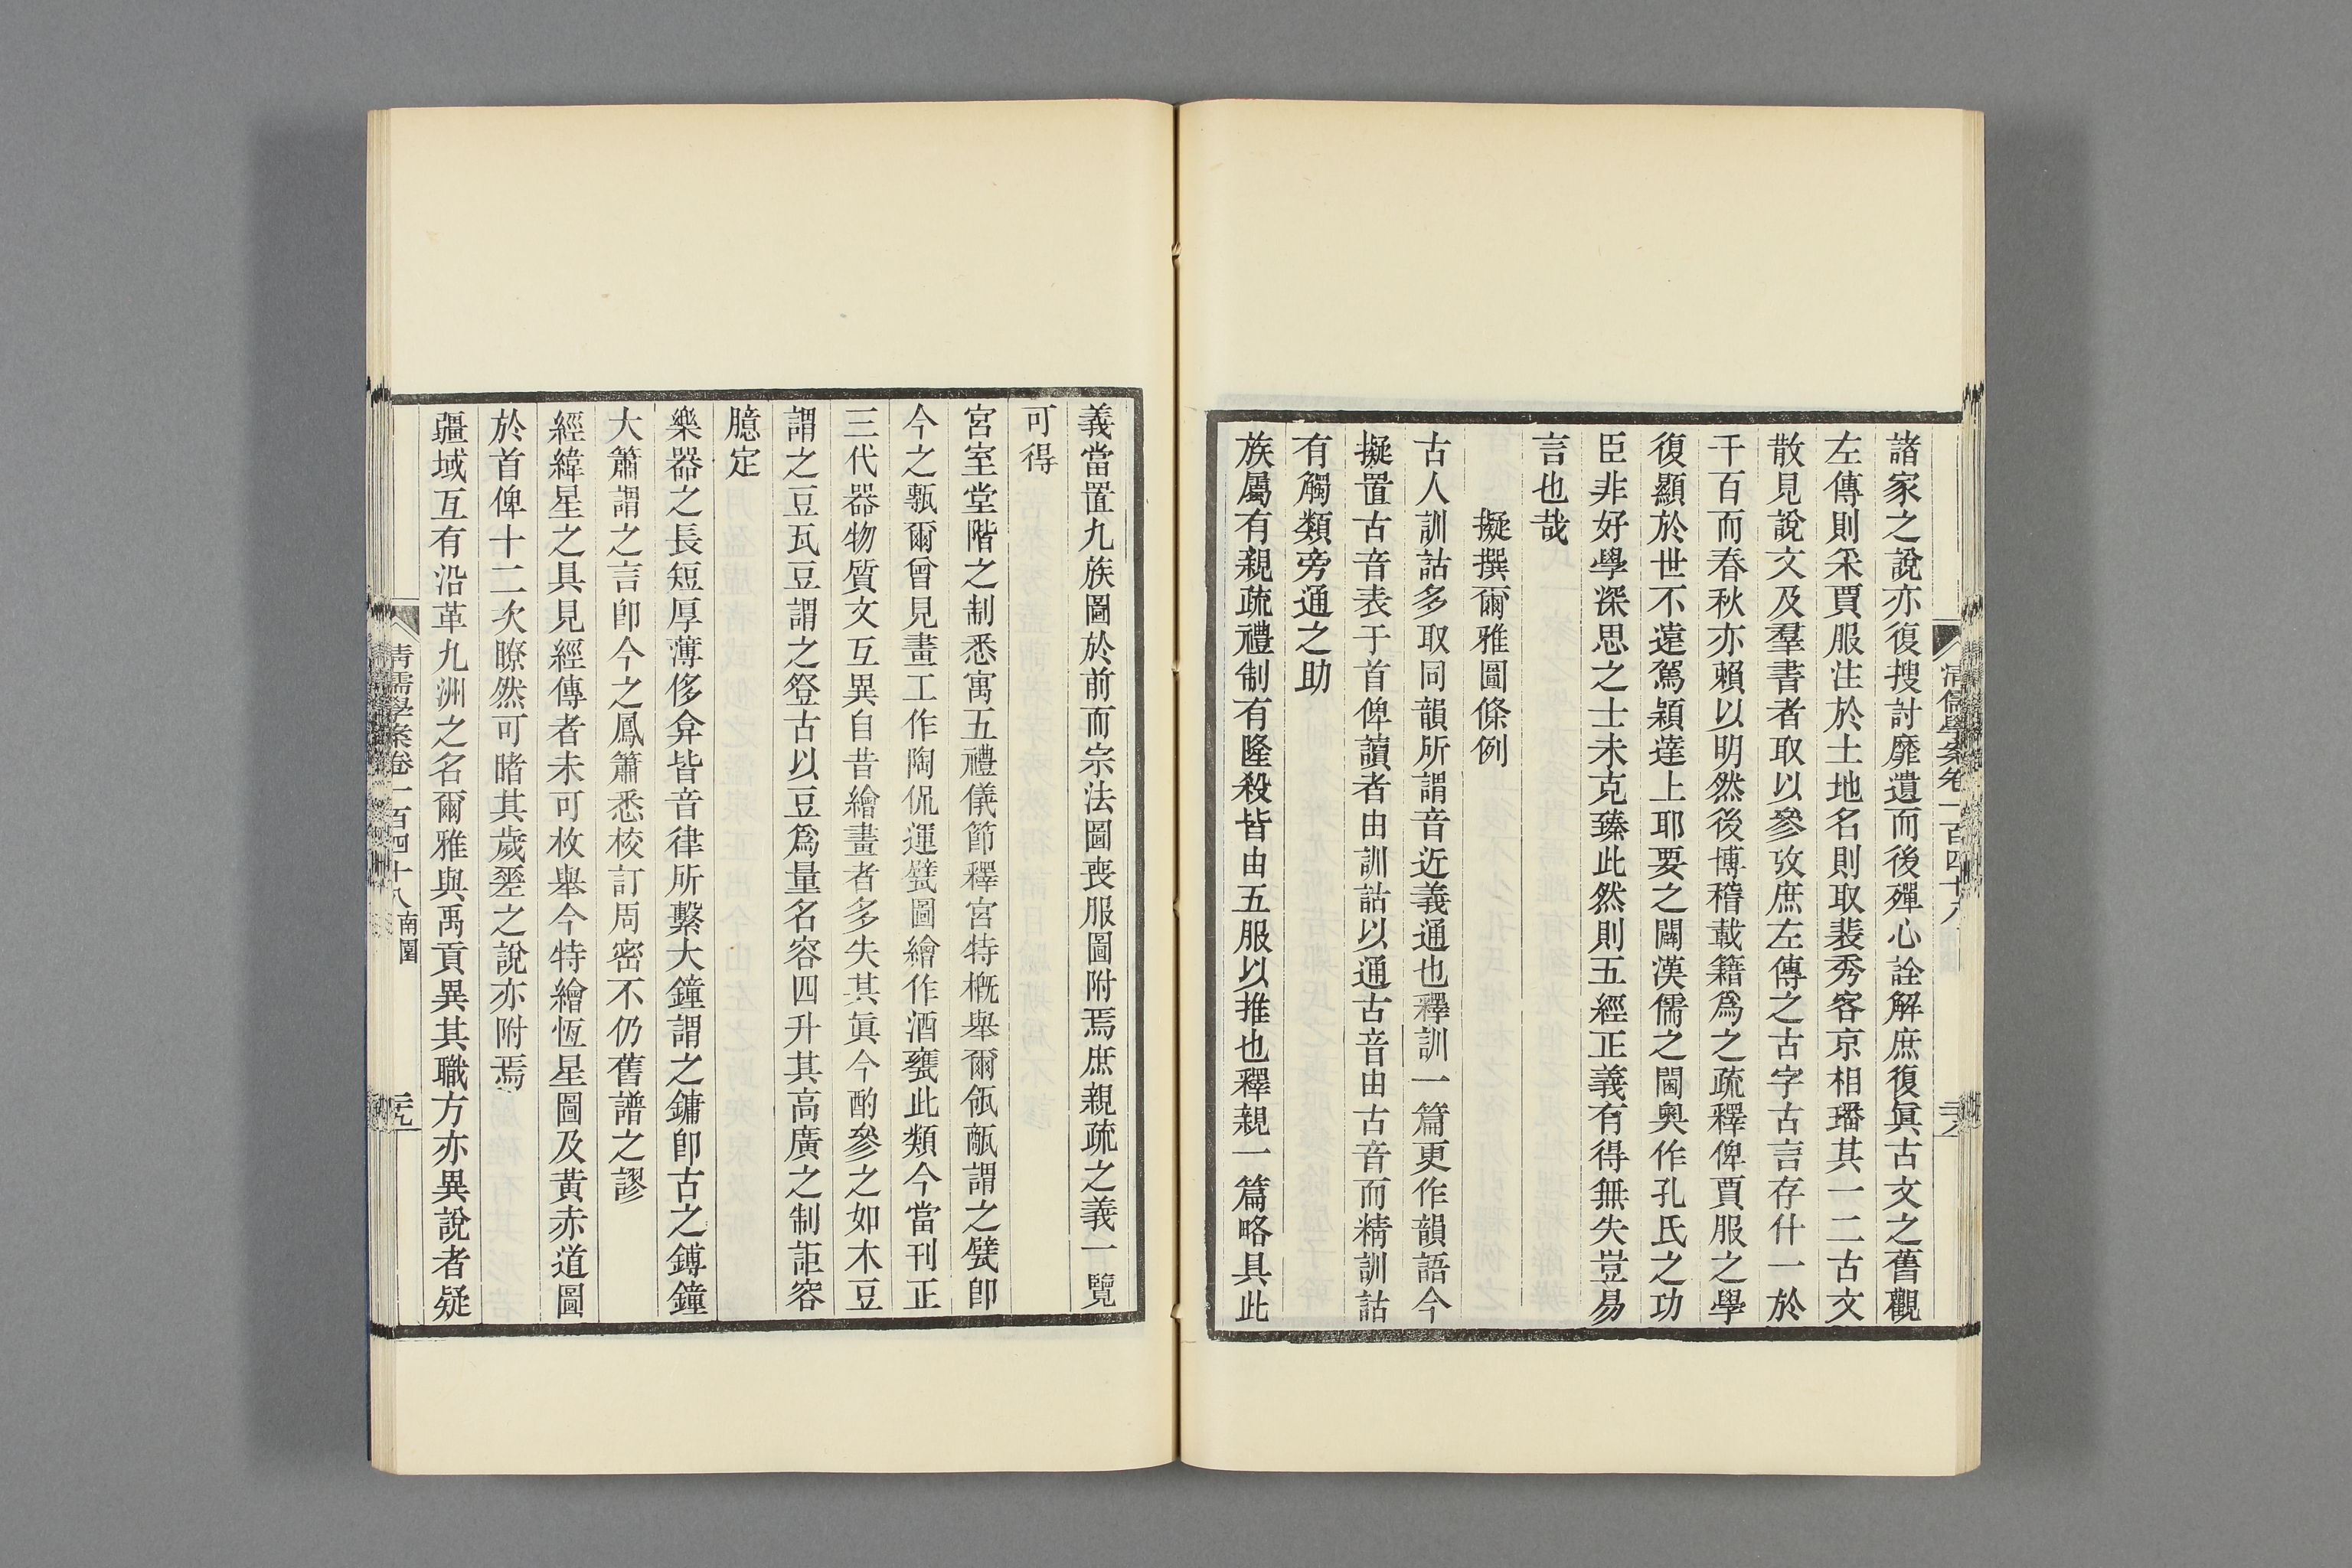 諸家之說亦復搜討靡遺而後殫心詮解庶復眞古文之舊觀
左傳則采賈服注於土地名則取裴秀客京相璠其一二古文
散見說文及羣書者取以參攷庶左傳之古字古言存什一於
千百而春秋亦賴以明然後博稽載籍爲之疏釋俾賈服之學
復顯於世不遠駕穎達上耶要之闢漢儒之閫奧作孔氏之功
臣非好學深思之士未克臻此然則五經正義有得無失豈易
言也哉
擬撰爾雅圖條例
古人訓詁多取同韻所謂音近義通也釋訓一篇更作韻語今
擬置古音表于首俾讀者由訓詁以通古音由古音而精訓詁
有觸類旁通之助
族屬有親疏禮制有隆殺皆由五服以推也釋親一篇略具此
清儒學案卷一百四十八
義當置九族圖於前而宗法圖喪服圖附焉庶親疏之義一覽
可得
宮室堂階之制悉寓五禮儀節釋宮特槪舉爾瓴甋謂之甓卽
今之甎爾曾見畫工作陶侃運甓圖繪作酒罋此類今當刊正
三代器物質文互異自昔繪畫者多失其眞今酌參之如木豆
謂之豆瓦豆謂之登古以豆爲量名容四升其高廣之制詎容
臆定
樂器之長短厚薄侈弇皆音律所繫大鐘謂之鏞卽古之鎛鐘
大簫謂之言卽今之鳳簫悉校訂周密不仍舊譜之謬
經緯星之具見經傳者未可枚舉今特繪恆星圖及黃赤道圖
於首俾十二次瞭然可睹其歲差之說亦附焉
疆域互有沿革九洲之名爾雅與禹貢異其職方亦異說者疑
清儒學案卷一百四十八 南園